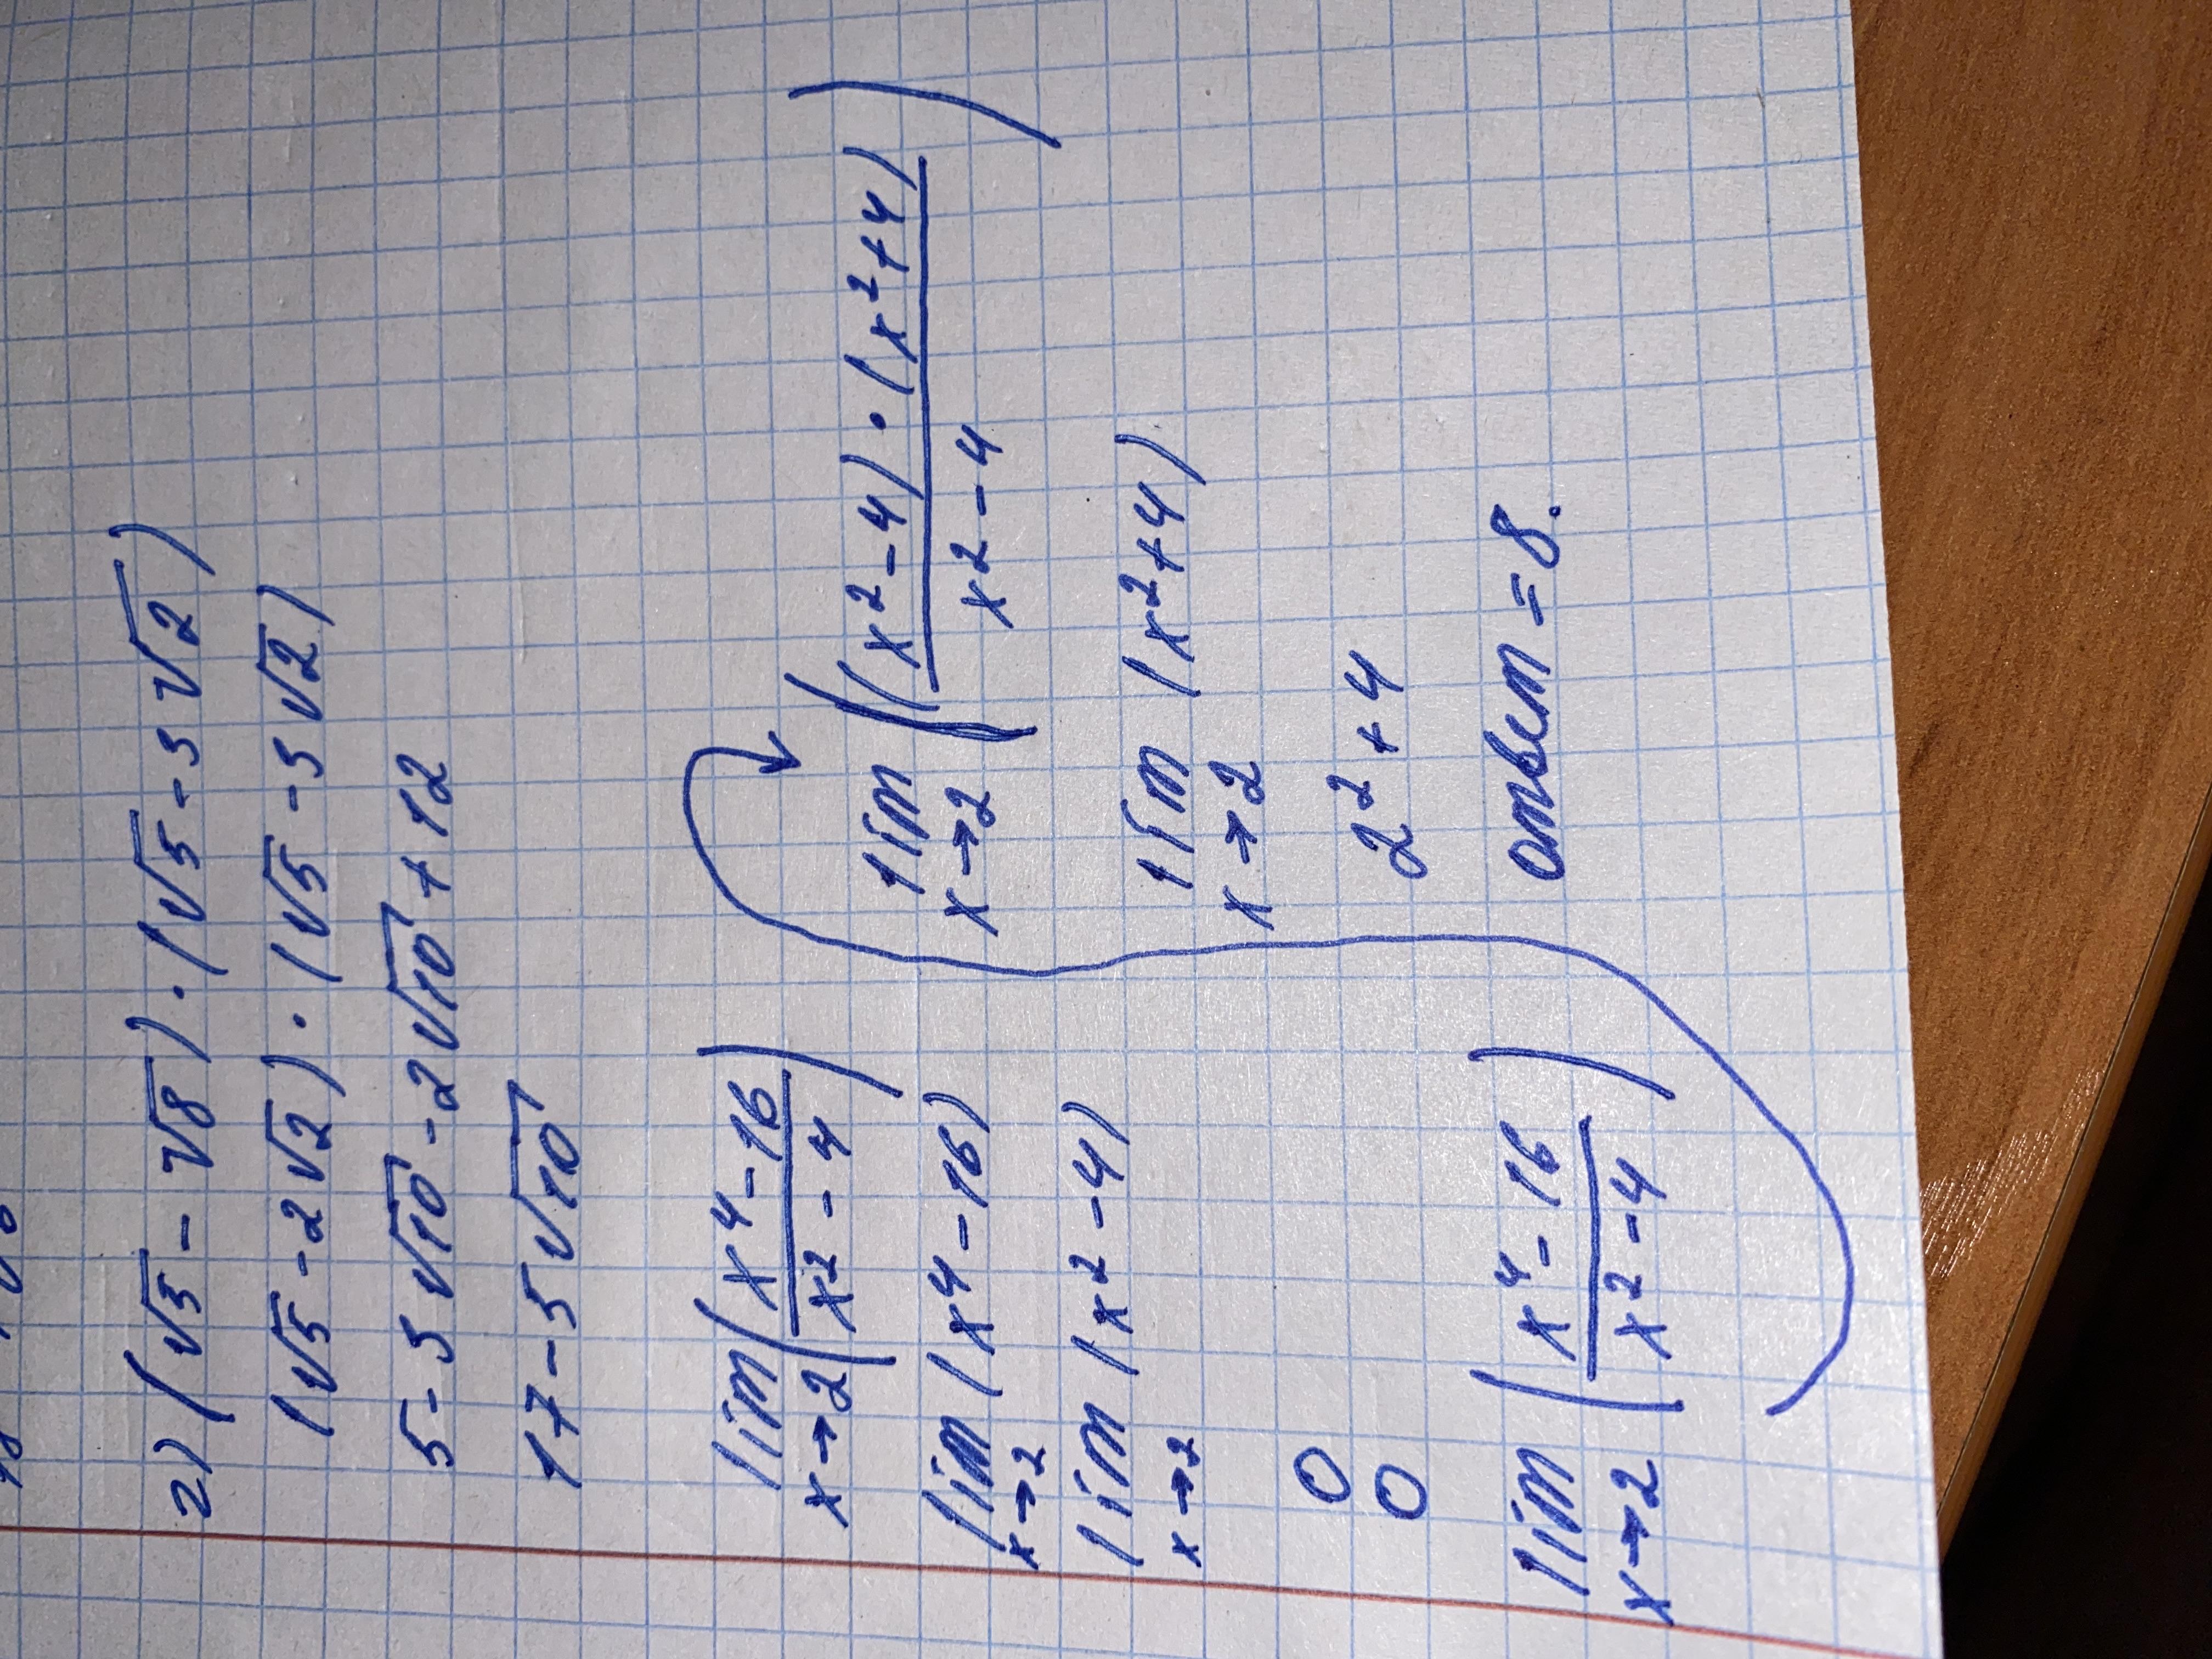 2) (√5 - √8) · (√5 - 3√2)
(√5 - 2√2) · (√5 - 3√2)
5 - 3√10 - 2√10 + 12
17 - 5√10
lim x→2 (x⁴ - 16 / x² - 4)
lim x→2 (x⁴ - 16)
lim x→2 (x² - 4)
0
0
lim x→2 (x⁴ - 16 / x² - 4)
lim x→2 ((x² - 4) · (x² + 4) / x² - 4)
lim x→2 (x² + 4)
2² + 4
ответ = 8.